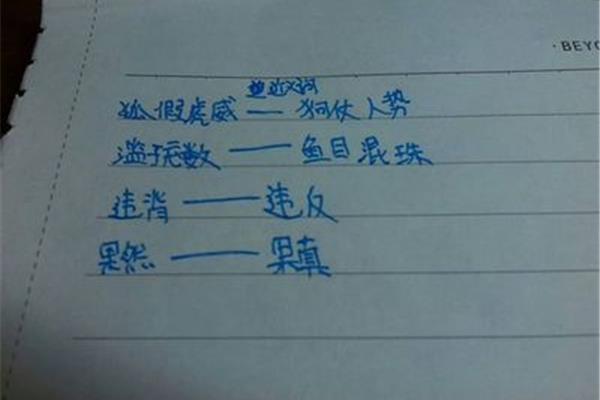 ·BEYO
近义词
狐假虎威——狗仗人势
滥竽充数——鱼目混珠
违背——违反
果然——果真